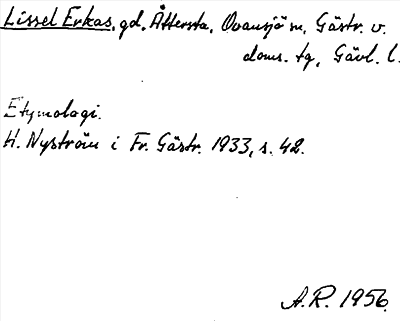 Lissel Erkas, gd, Åttersta, Ovansjö sn, Gästr. v.
doms. tg, Gävl. l.
Etymologi.
H. Nyström i Fr. Gästr. 1933, s. 42.
A.R. 1956.